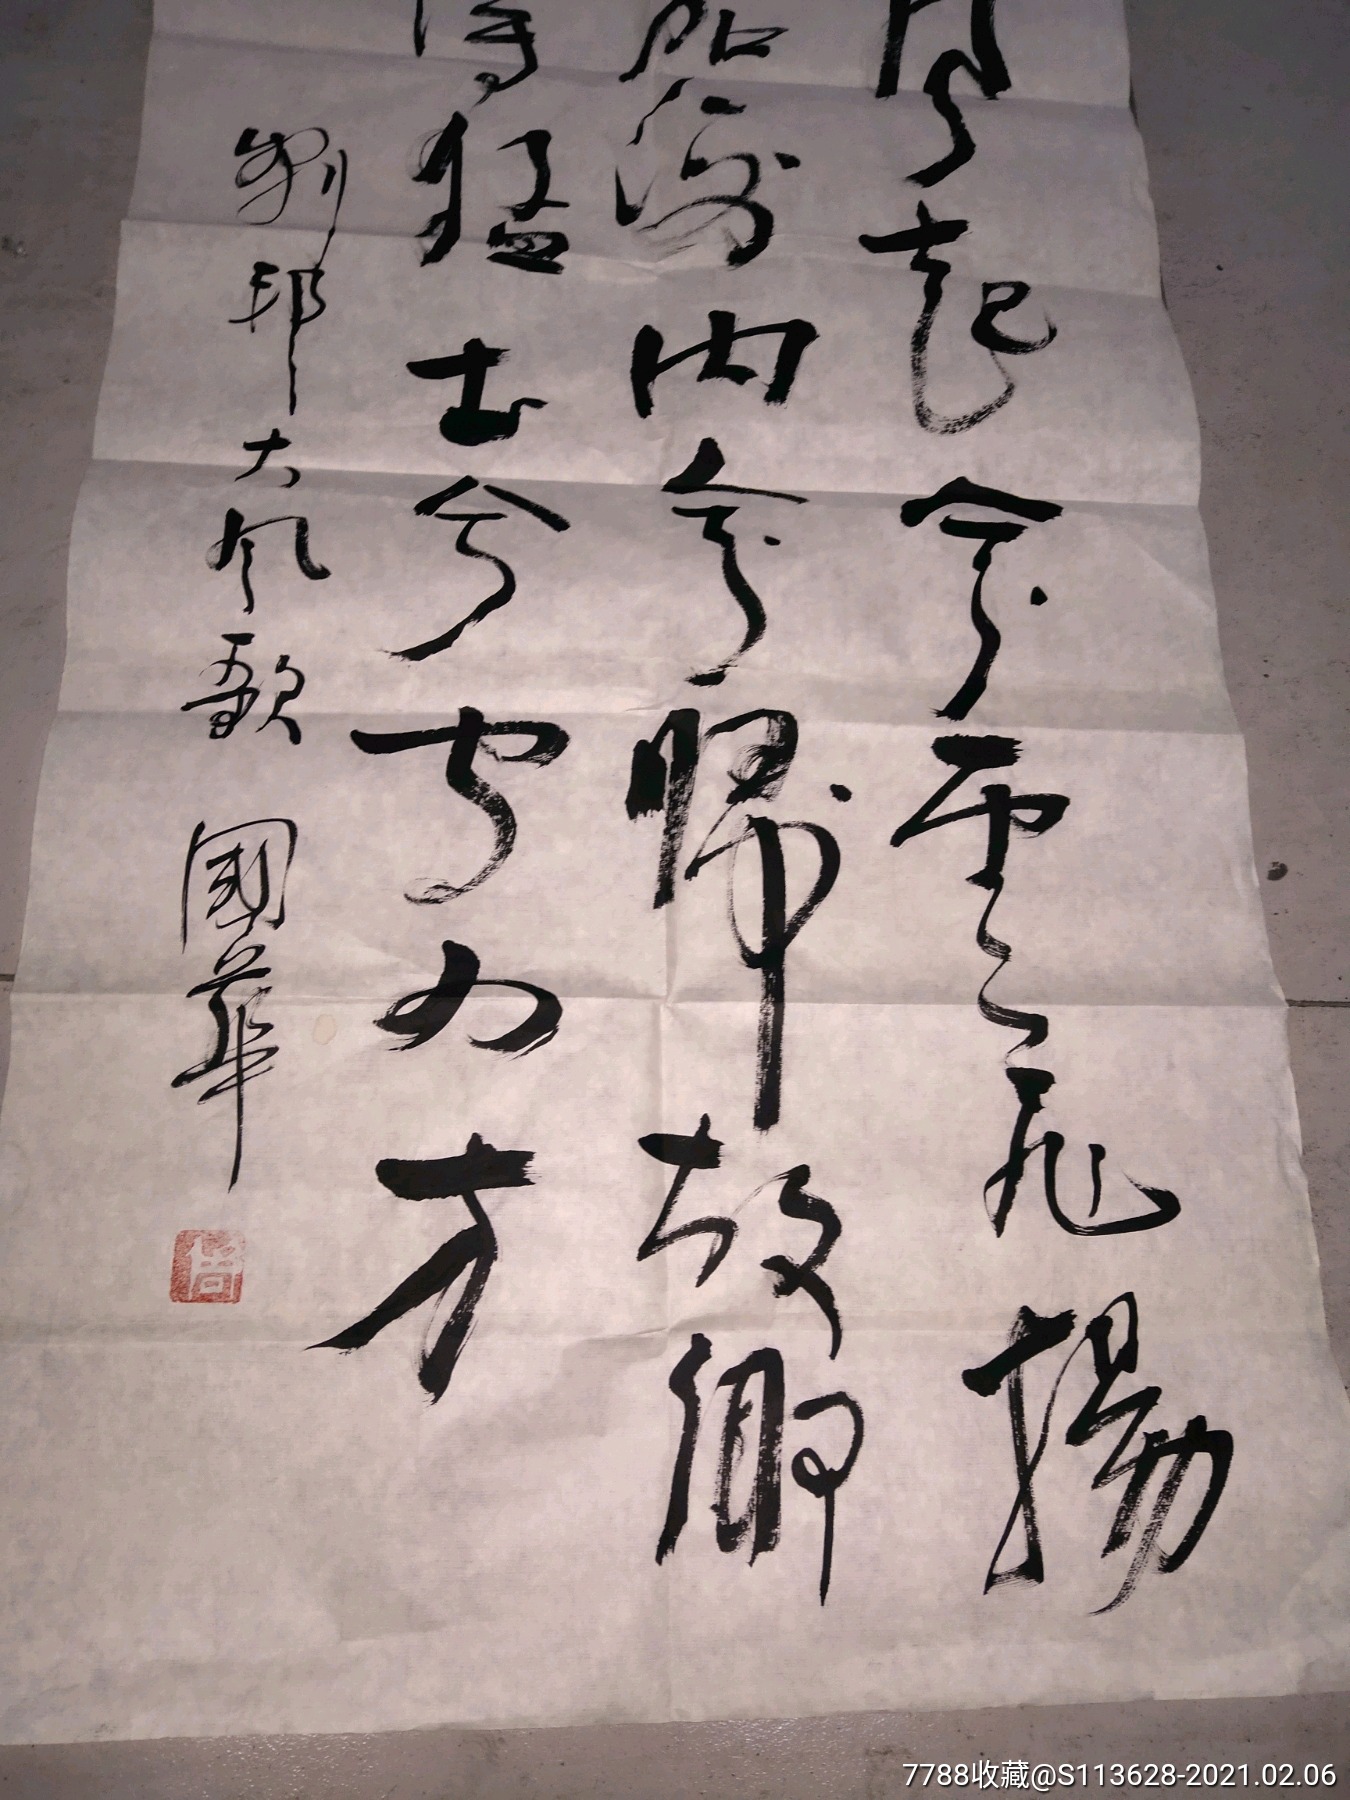 風起兮雲飛揚
加海內兮歸故鄉
得猛士兮守四方
劉邦大风歌 國華
7788收藏@S113628-2021.02.06